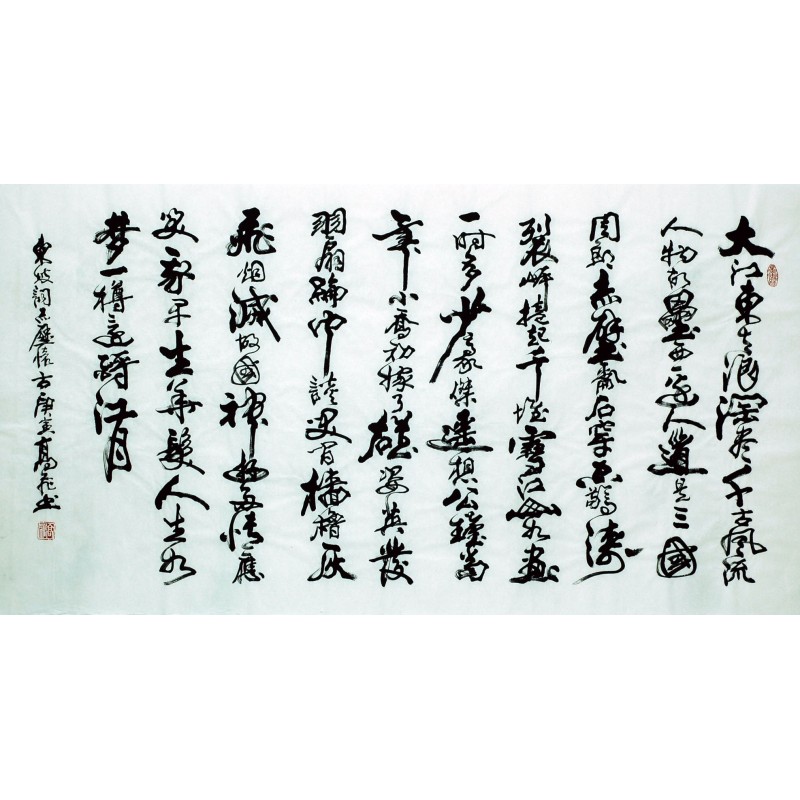 大江東去浪淘盡千古風流
人物故壘西邊人道是三國
周郎赤壁亂石穿空驚濤
裂岸捲起千堆雪江山如畫
一時多少豪傑遙想公瑾當
年小喬初嫁了雄姿英發
羽扇綸巾談笑間檣櫓灰
飛烟滅故國神遊多情應
笑我早生華髮人生如
梦一樽還酹江月
東坡詞赤壁懷古庚寅高飛書